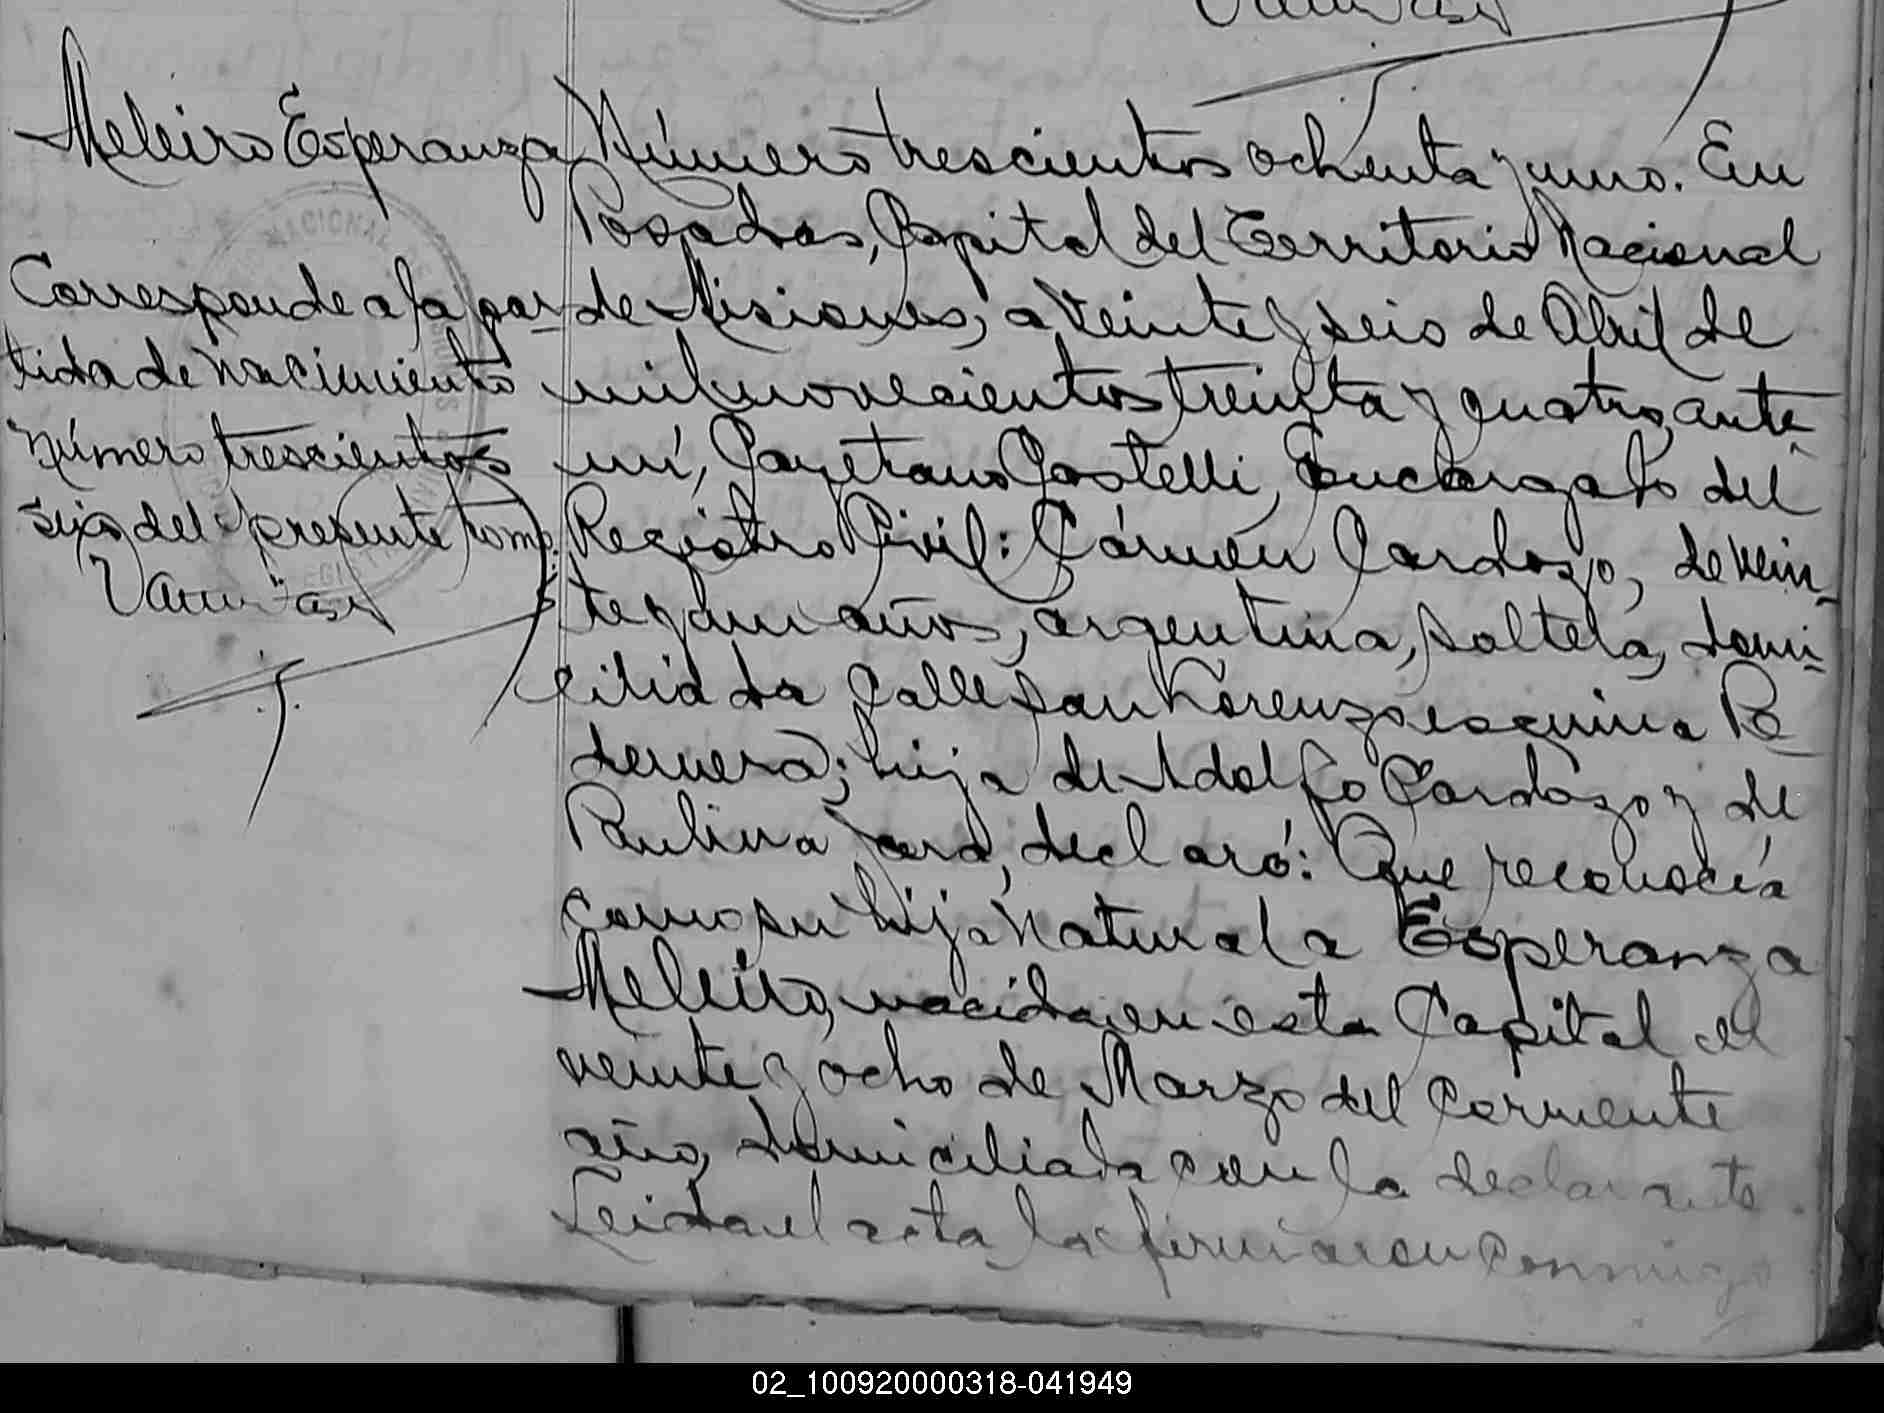 Meleiro Esperanza
Corresponde a la par-
tida de nacimiento
número trescientos
seis del presente tomo.
Número trescientos ochenta y uno. En
Posadas, Capital del Territorio Nacional
de Misiones, a veinte y seis de Abril de
mil novecientos treinta y cuatro, ante
mí, Cayetano Castelli, Encargado del
Registro Civil: Cármen Cardozo, de vein-
te y un años, argentina, soltera, domi-
ciliada calle San Lorenzo esquina Pe
dernera; hija de Adolfo Cardozo y de
Paulina Jara, declaró: Que reconocía
como su hija natural a Esperanza
Meleiro, nacida en esta Capital el
veinte y ocho de Marzo del corriente
año, domiciliada con la declarante.
Leida el acta la firmaron conmigo
02_100920000318-041949